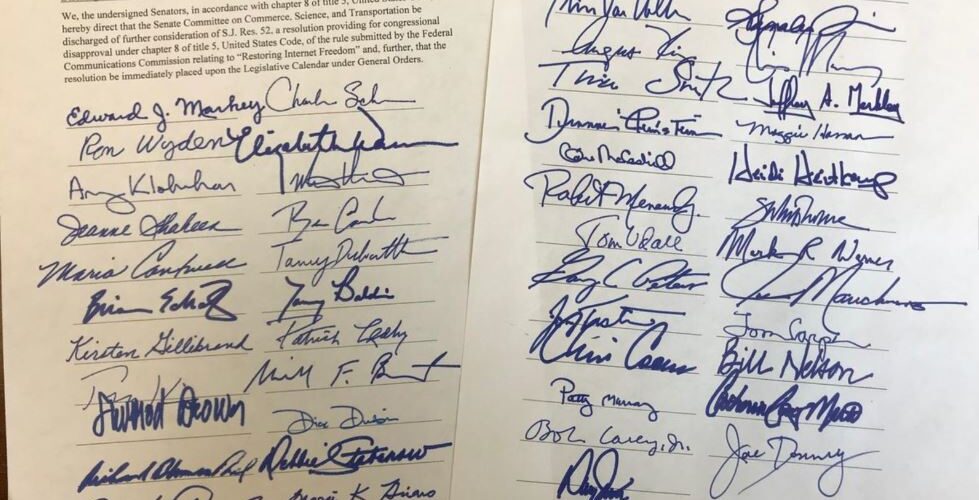 We, the undersigned Senators, in accordance with chapter 8 of title 5, United States
hereby direct that the Senate Committee on Commerce, Science, and Transportation be
discharged of further consideration of S.J. Res. 52, a resolution providing for congressional
disapproval under chapter 8 of title 5, United States Code, of the rule submitted by the Federal
Communications Commission relating to “Restoring Internet Freedom” and, further, that the
resolution be immediately placed upon the Legislative Calendar under General Orders.
Edward J. Markey
Ron Wyden Elizabeth Warren
Amy Klobuchar
Jeanne Shaheen Ben Cardin
Maria Cantwell Tammy Duckworth
Brian Schatz Tammy Baldwin
Kirsten Gillibrand Patrick Leahy
Michael F. Bennet
Sherrod Brown Dick Durbin
Richard Blumenthal Debbie Stabenow
Mazie K. Hirono
Angus King
Tina Smith Jeffrey A. Merkley
Dianne Feinstein Maggie Hassan
Claire McCaskill Heidi Heitkamp
Robert Menendez
Tom Udall Mark R. Warner
Gary C. Peters Joe Manchin
Jon Tester Tom Carper
Chris Coons Bill Nelson
Patty Murray Catherine Cortez Masto
Bob Casey, Jr. Joe Donnelly